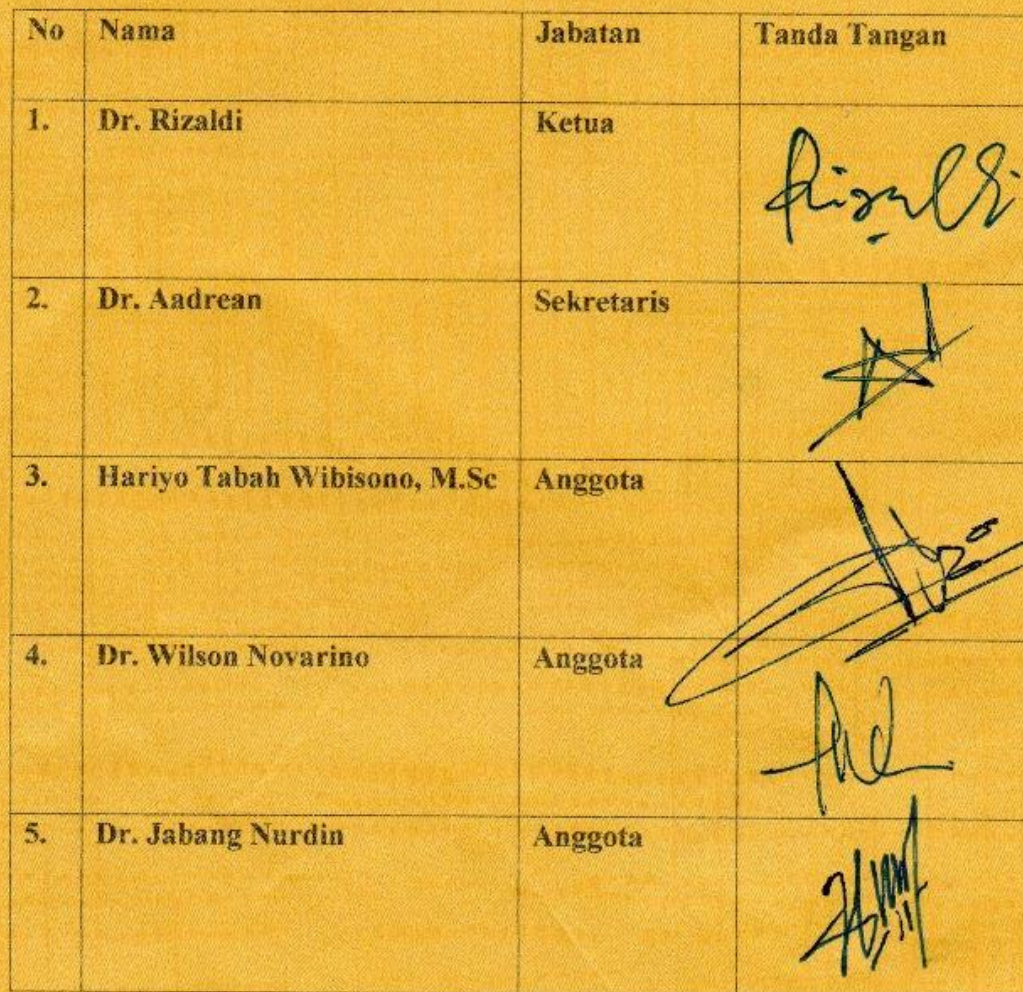 No Nama Jabatan Tanda Tangan
1. Dr. Rizaldi Ketua
Rizaldi
2. Dr. Aadrean Sekretaris
3. Hariyo Tabah Wibisono, M.Sc Anggota
4. Dr. Wilson Novarino Anggota
5. Dr. Jabang Nurdin Anggota